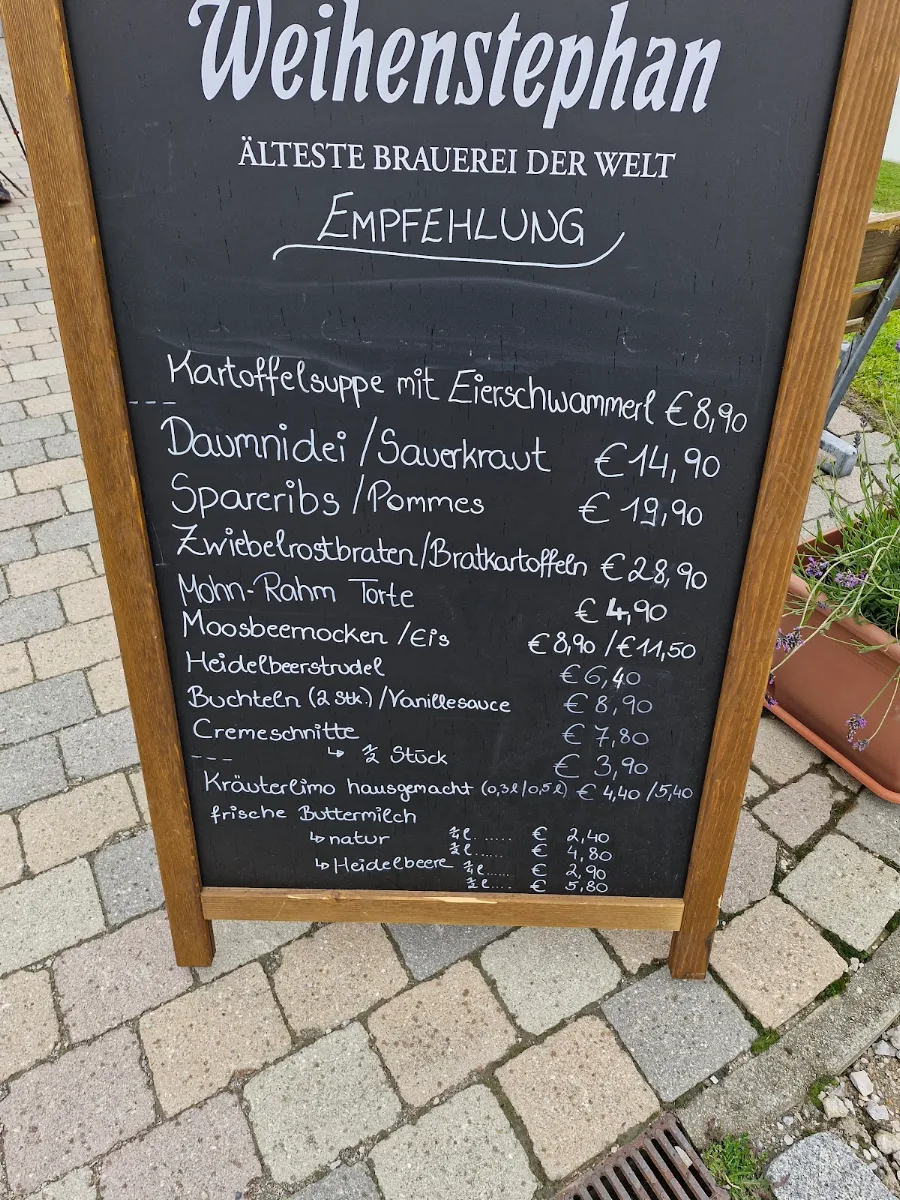 Weihenstephan
ÄLTESTE BRAUEREI DER WELT
EMPFEHLUNG
Kartoffelsuppe mit Eierschwammerl €8,90
---
Daumnidei/Sauerkraut €14,90
Spareribs/Pommes €19,90
Zwiebelrostbraten/Bratkartoffeln €28,90
Mohn-Rahm Torte €4,90
Moosbeernocken/Eis €8,90/€11,50
Heidelbeerstrudel €6,40
Buchteln (2 Stk.)/Vanillesauce €8,90
Cremeschnitte €7,80
↳ ½ Stück €3,90
---
Kräuterlimo hausgemacht (0,3l/0,5l) €4,40/5,40
frische Buttermilch
↳ natur ¼l....... € 2,40
½l...... € 4,80
↳ Heidelbeere ¼l...... € 2,90
½l.... € 5,80